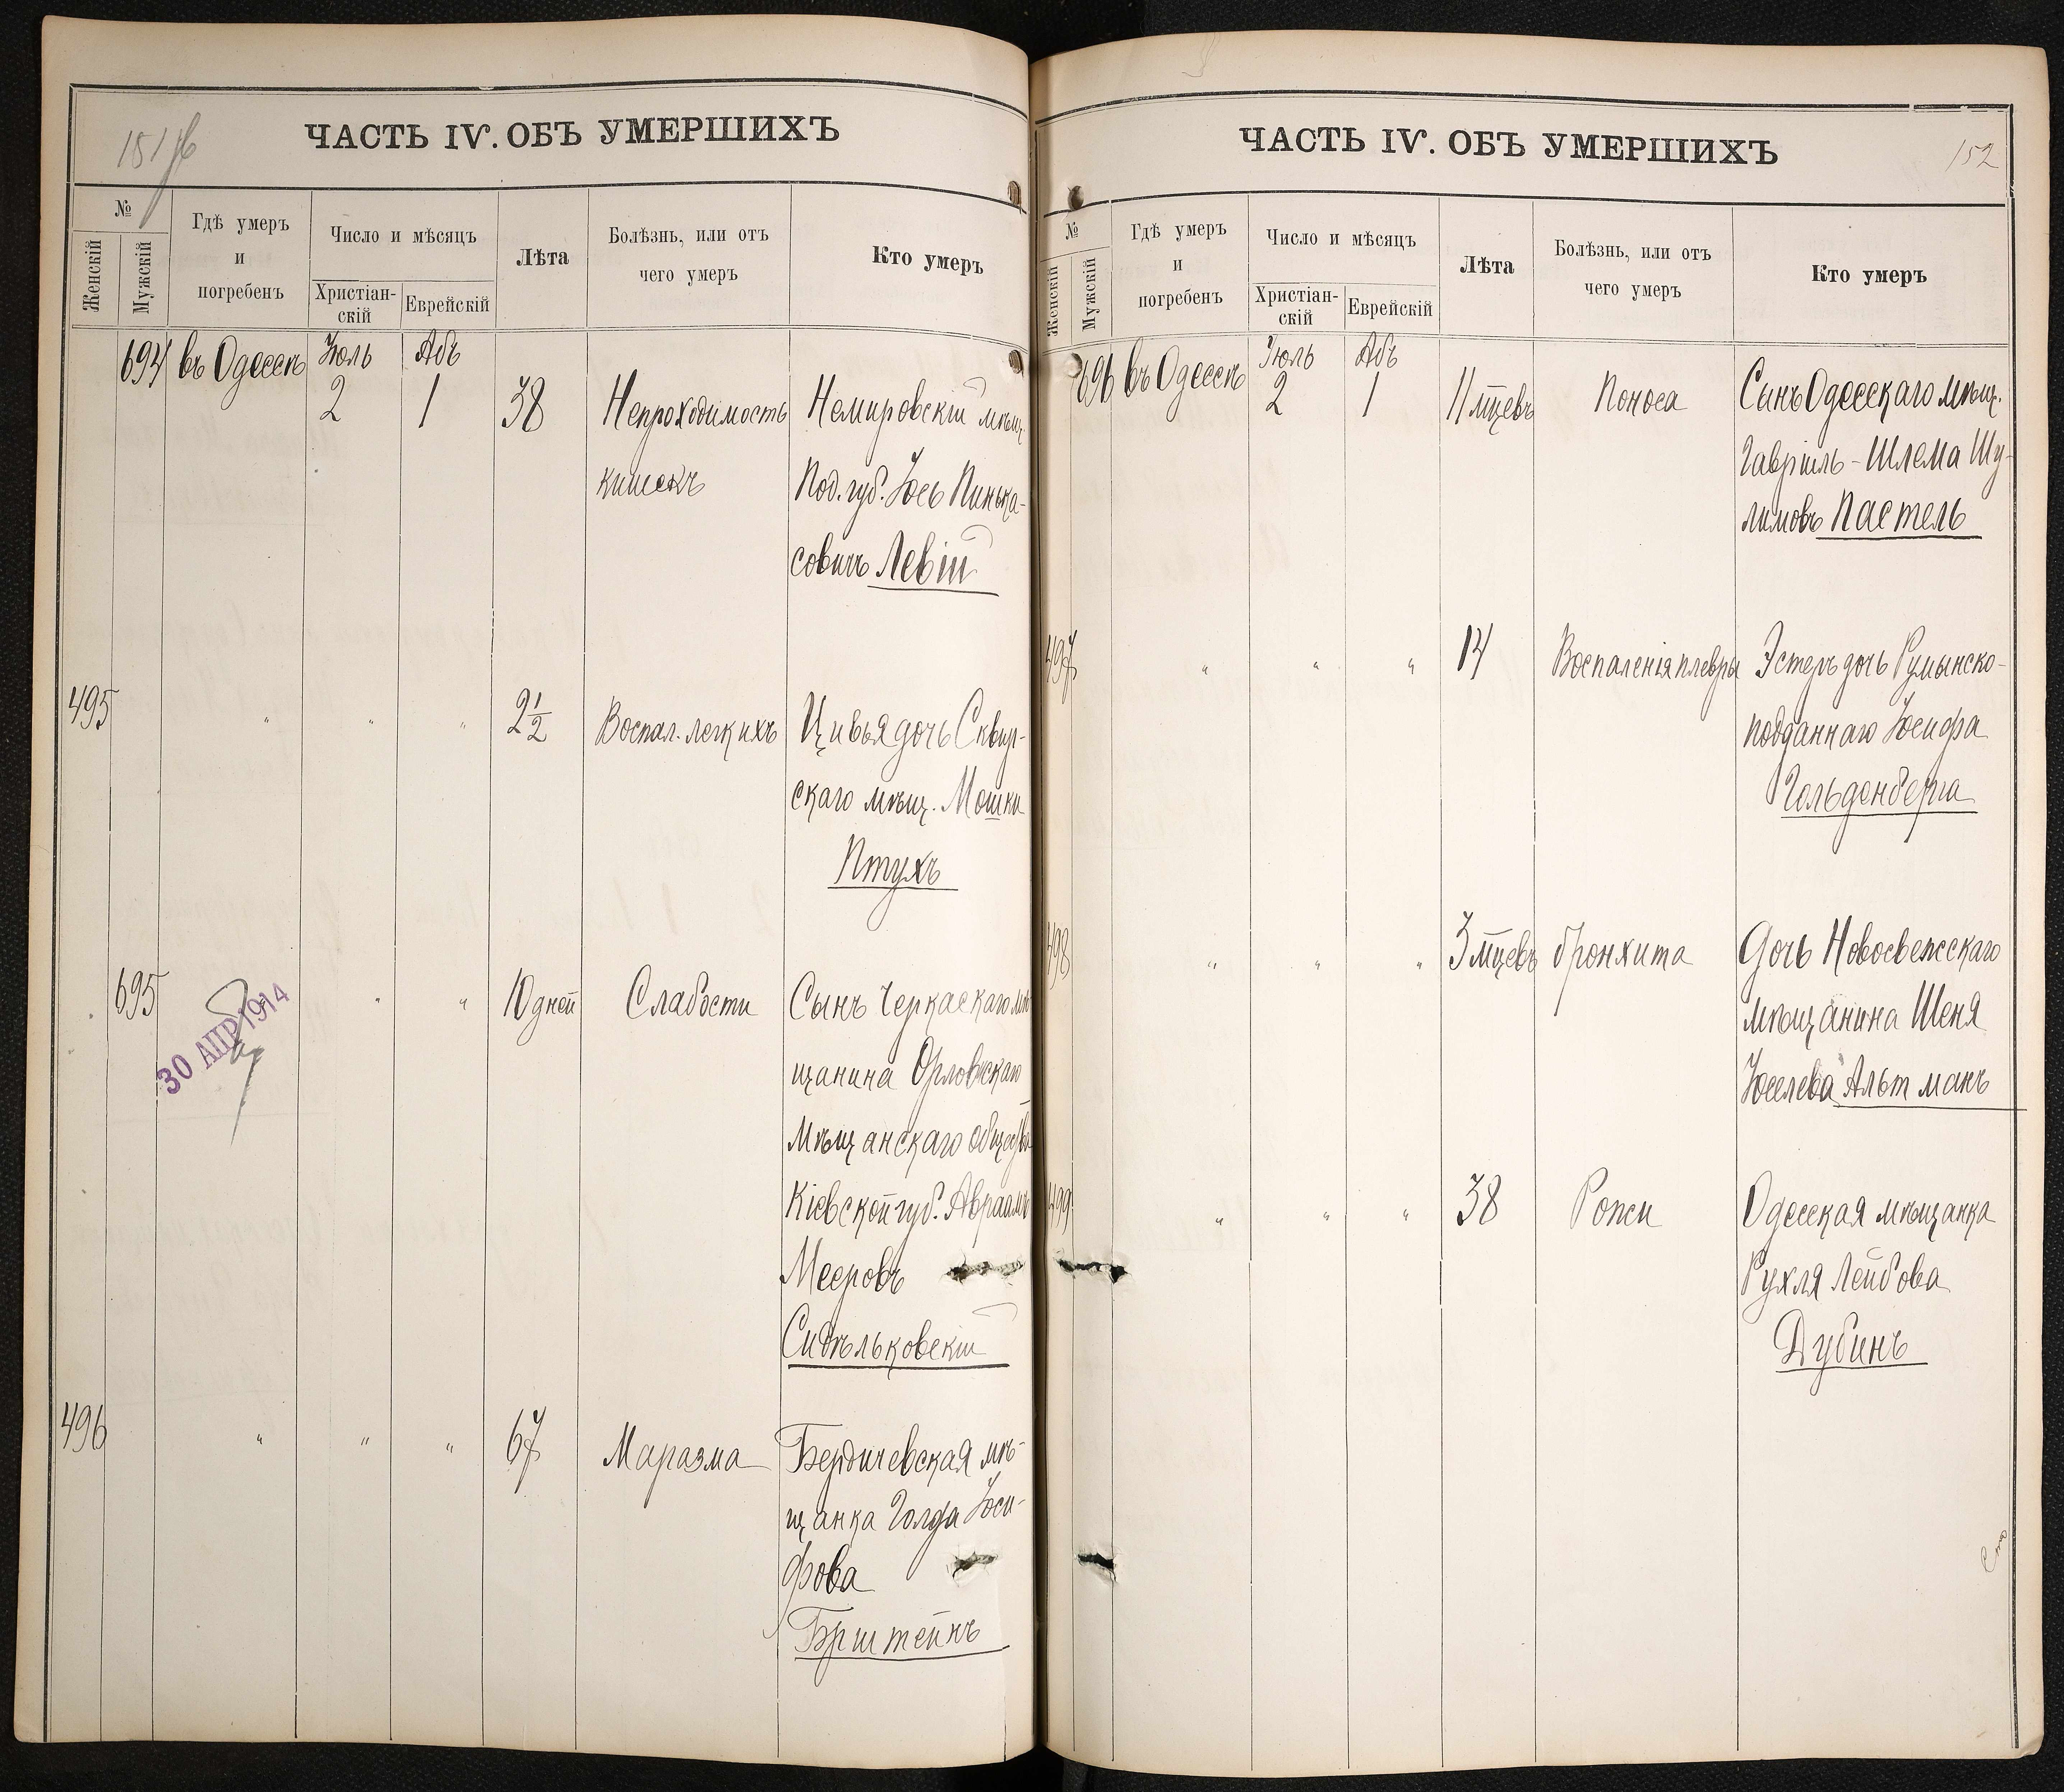 151
ЧАСТЬ IV. ОБЪ УМЕРШИХЪ
№
Женскій
Мужскій
Гдѣ умеръ
и
погребенъ
Число и мѣсяцъ
Христіан-
скій
Еврейскій
Лѣта
Болѣзнь, или отъ
чего умеръ
Кто умеръ
694 въ Одессѣ Іюль Абъ
2 1 38 Непроходимость Немировскій мѣщ.
кишекъ Под. губ. Іось Пинька-
совичъ Левій
495 " " " 2 1/2 Воспал. легкихъ Цивья дочь Сквир-
скаго мѣщ. Мошки
Птухъ
695 " " " 10 дней Слабости Сынъ Черкаскаго мѣ-
щанина Орловскаго
Мѣщанскаго общества
Кіевской губ. Авраамъ
Мееровъ
Сидѣльковскій
30 АПР 1914
496 " " " 67 Маразма Бердичевская мѣ-
щанка Голда Іоси-
фова
152
ЧАСТЬ IV. ОБЪ УМЕРШИХЪ
№
Женскій
Мужскій
Гдѣ умеръ
и
погребенъ
Число и мѣсяцъ
Христіан-
скій
Еврейскій
Лѣта
Болѣзнь, или отъ
чего умеръ
Кто умеръ
696 въ Одессѣ Іюль Абъ
2 1 11 мцевъ Поноса Сынъ Одесскаго мѣщ.
Гавріиль-Шлема Шу-
лимовъ Пастель
497 " " " 14 Воспаленія плевры Эстеръ дочь Румынско-
подданнаго Іосифа
Гольденберга
498 " " " 3 мцевъ бронхита Дочь
мѣщанина Шеня
Іоселева Альтманъ
499 " " " 38 Рожи Одесская мѣщанка
Рухля Лейбова
Дубинъ